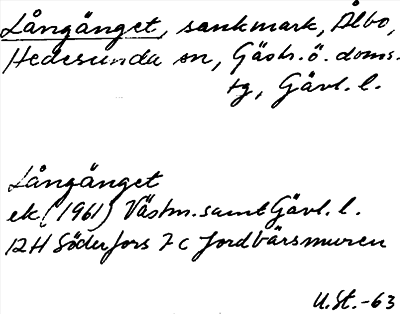 Långänget, sankmark, Ålbo,
Hedesunda sn, Gästr. ö. doms.
tg, Gävl. l.
Långänget
ek. (1961) Västm. samt Gävl. l.
12H Söderfors 7 c Jordbärsmuren
U.St.-63